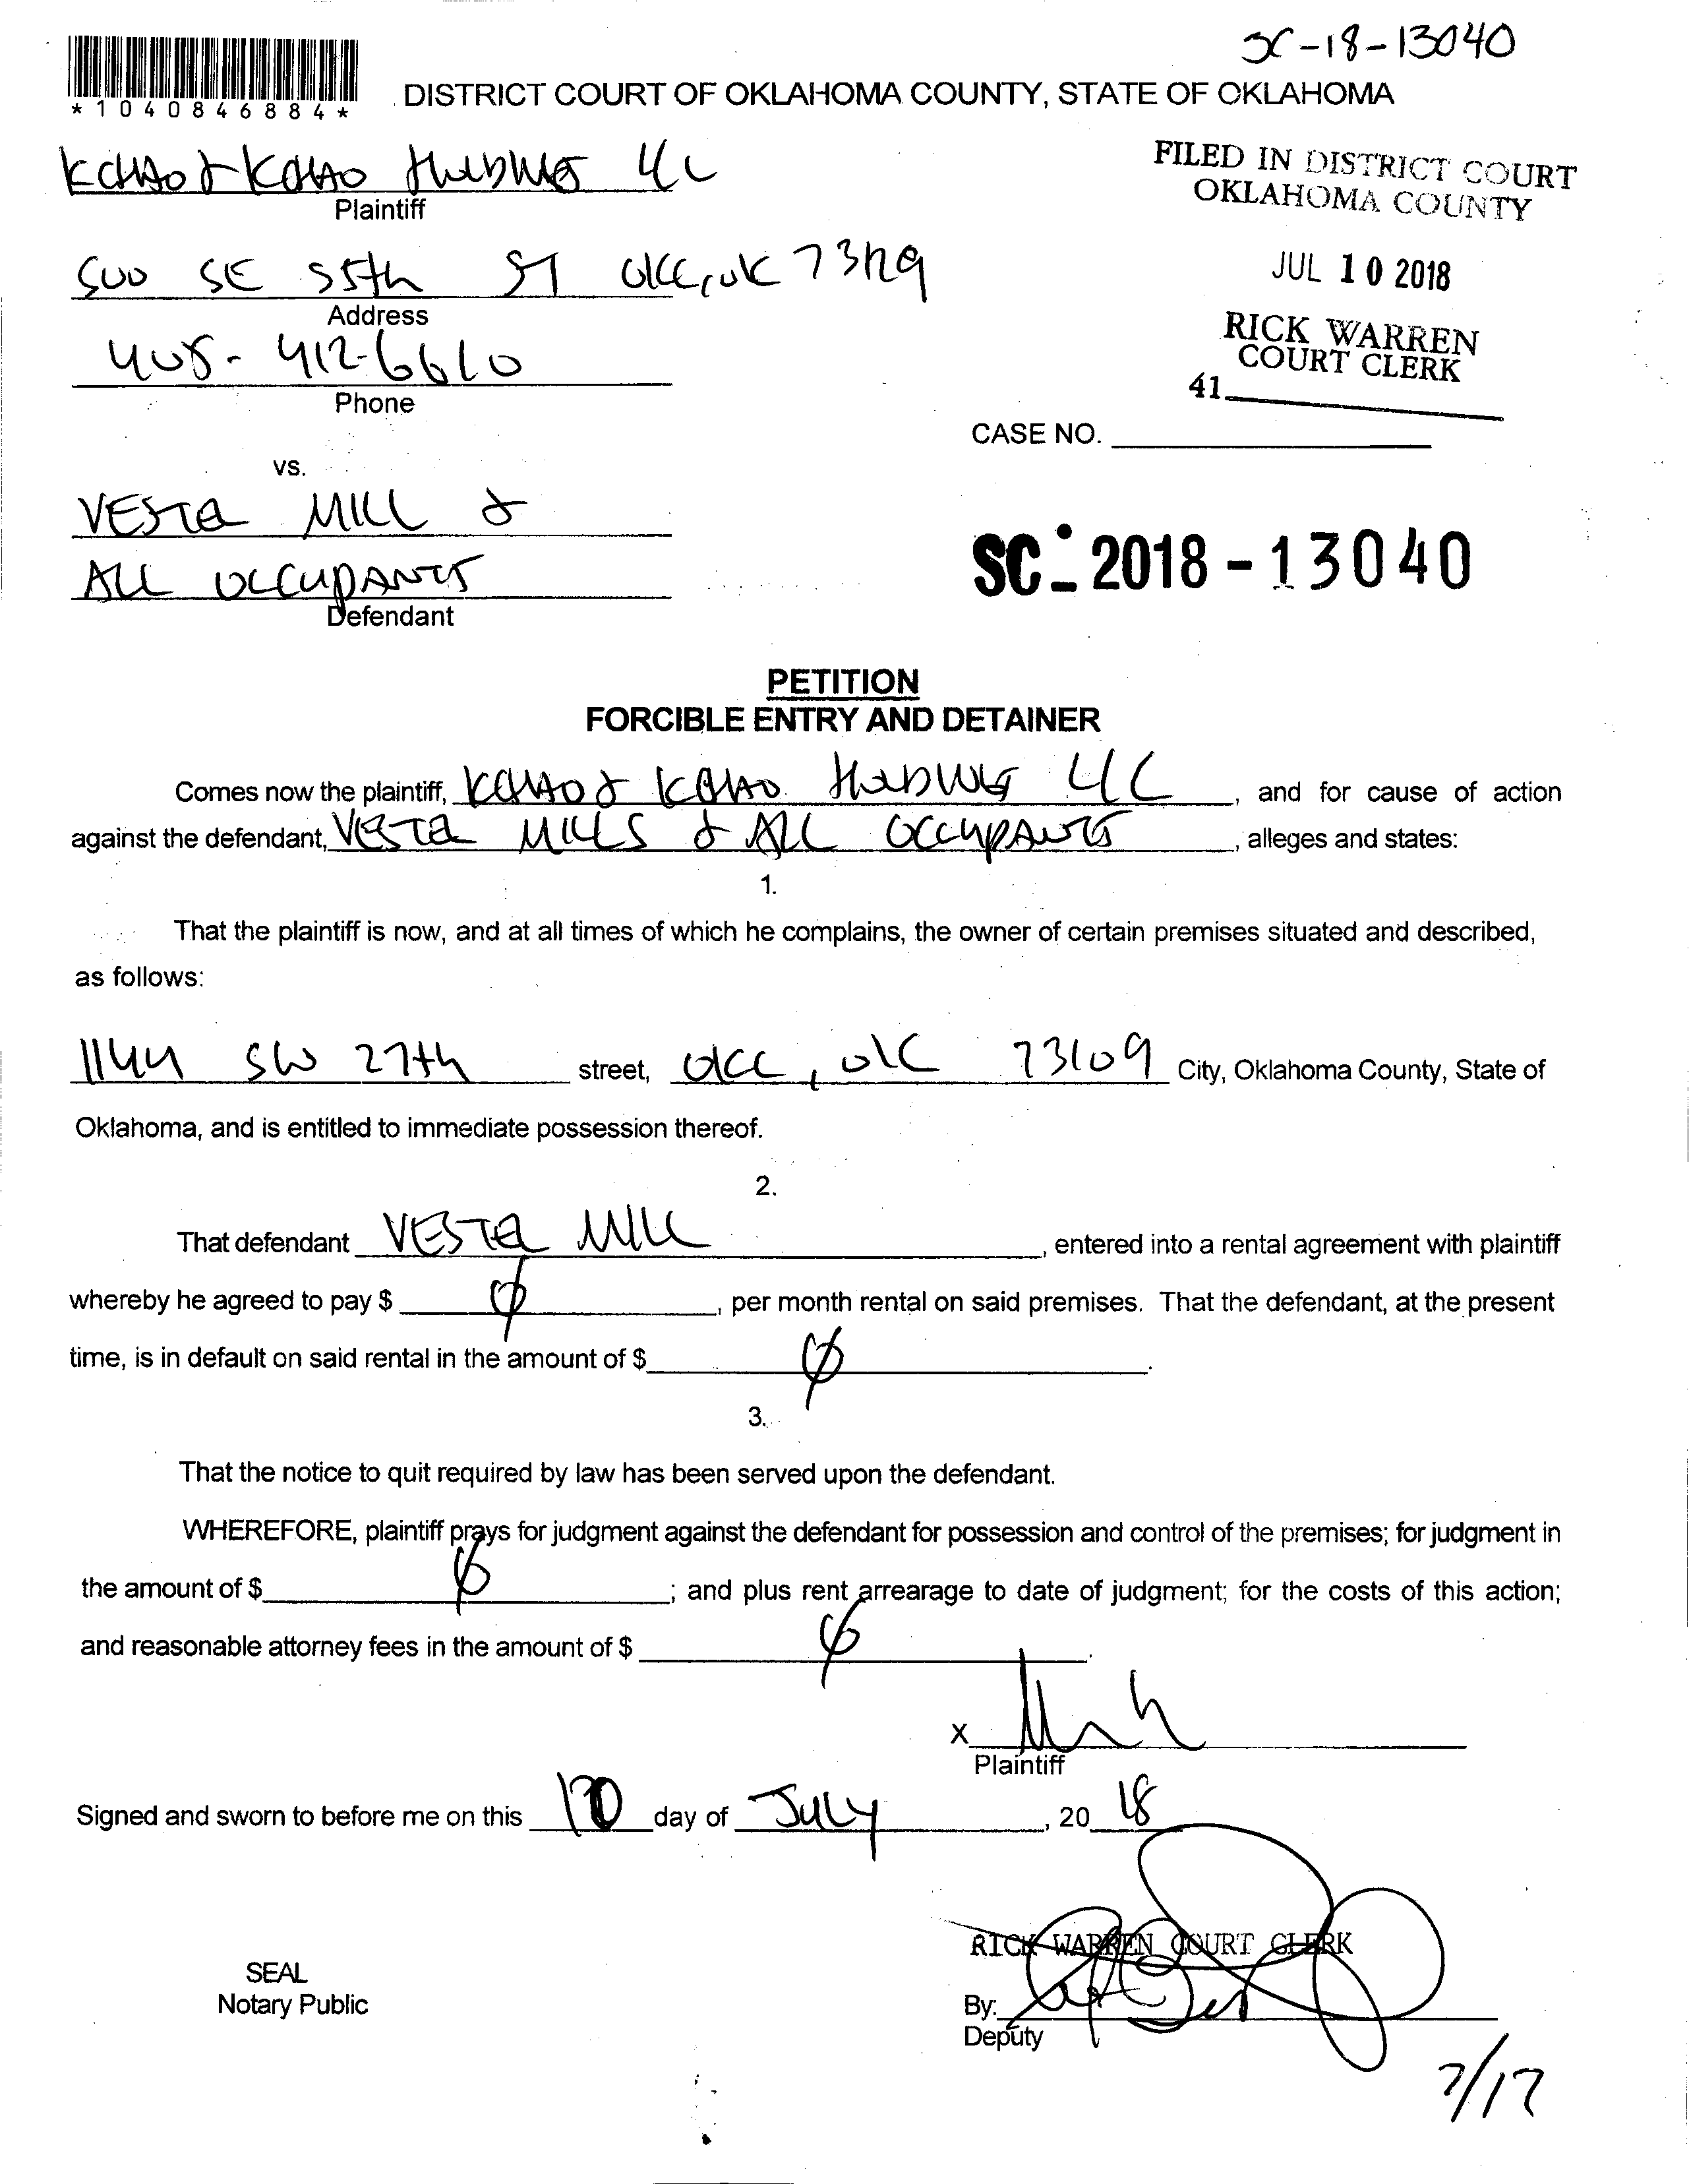 SC-18-13040
*1040846884*
DISTRICT COURT OF OKLAHOMA COUNTY, STATE OF OKLAHOMA
FILED IN DISTRICT COURT
OKLAHOMA COUNTY
LLC
Plaintiff
SE 55th ST OKC, OK 73129
Address
JUL 10 2018
RICK WARREN
COURT CLERK
41
405-412-6610
Phone
CASE NO.
vs.
VESTA MILL &
ALL OCCUPANTS
Defendant
SC-2018-13040
PETITION
FORCIBLE ENTRY AND DETAINER
Comes now the plaintiff, LLC, and for cause of action
against the defendant, VESTA MILLS & ALL OCCUPANTS, alleges and states:
1.
That the plaintiff is now, and at all times of which he complains, the owner of certain premises situated and described,
as follows:
1144 SW 27th street, OKC, OK 73109 City, Oklahoma County, State of
Oklahoma, and is entitled to immediate possession thereof.
2.
That defendant VESTA MILL, entered into a rental agreement with plaintiff
whereby he agreed to pay $ 0, per month rental on said premises. That the defendant, at the present
time, is in default on said rental in the amount of $ 0.
3.
That the notice to quit required by law has been served upon the defendant.
WHEREFORE, plaintiff prays for judgment against the defendant for possession and control of the premises; for judgment in
the amount of $ 0; and plus rent arrearage to date of judgment; for the costs of this action;
and reasonable attorney fees in the amount of $ 0.
X
Plaintiff
Signed and sworn to before me on this 10 day of July, 20 18
RICK WARREN COURT CLERK
SEAL
Notary Public
By:
Deputy
7/17